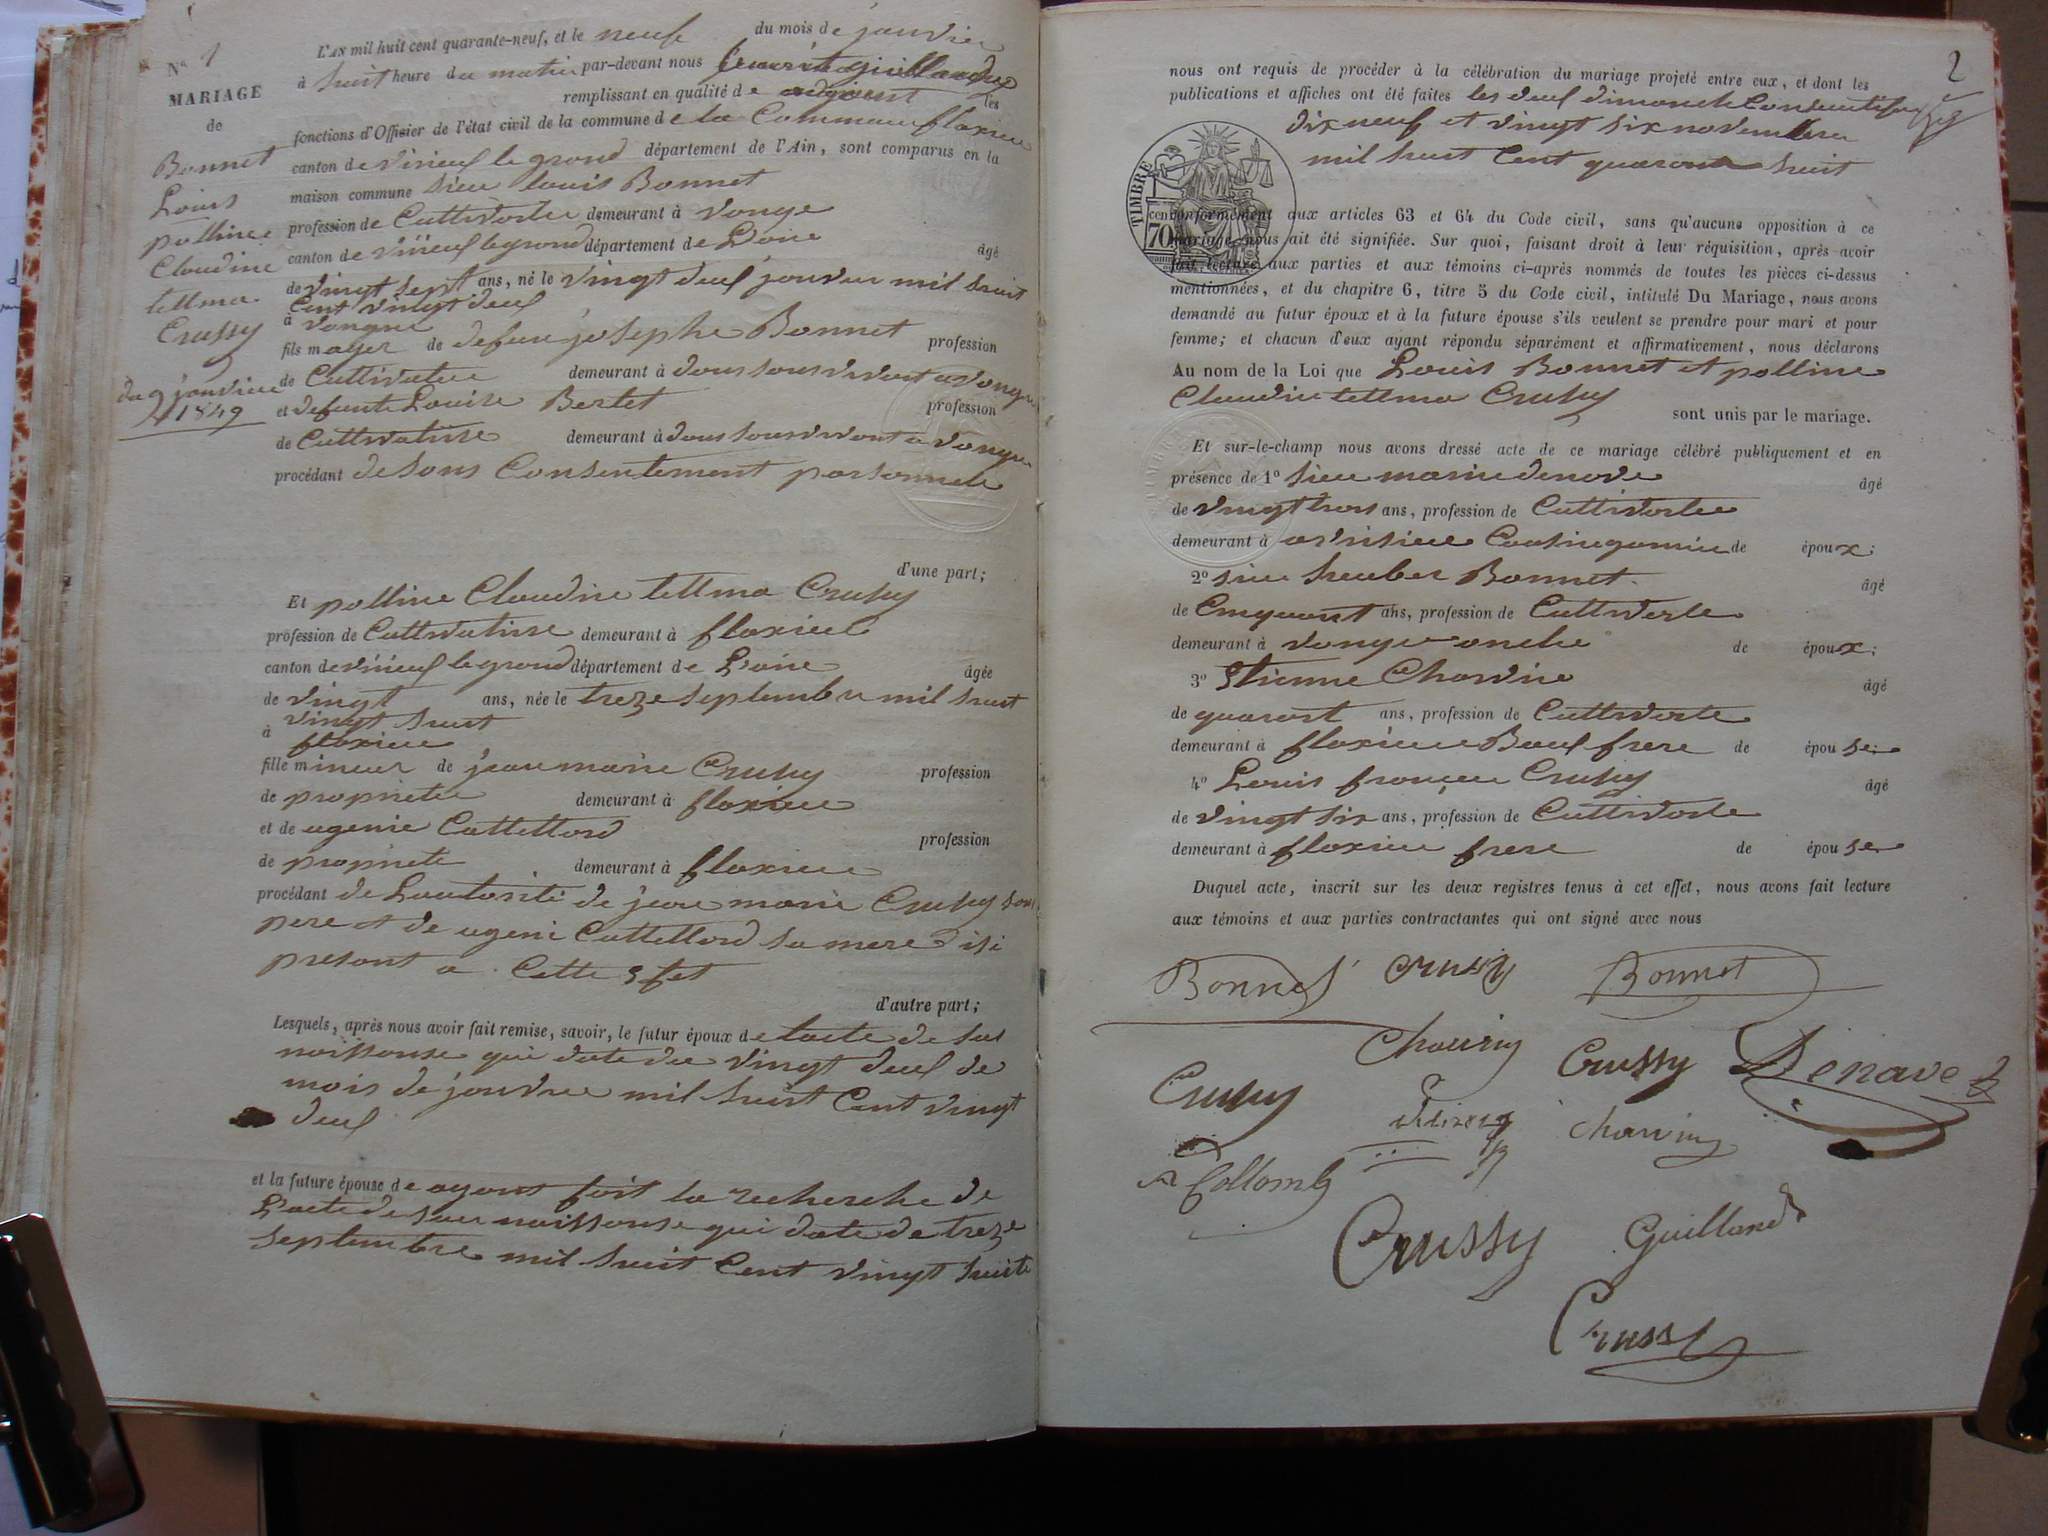 Nº 1
MARIAGE
de
Bonnet
Louis
polline
Claudine
tellma
Crussy
du 9 janvier
1849
L'AN mil huit cent quarante-neuf, et le neuf du mois de janvier
à huit heure du matin par-devant nous
remplissant en qualité de les
fonctions d'Officier de l'état civil de la commune de la Commune floxieu
canton de virieuf le grand département de l'Ain, sont comparus en la
maison commune sieu louis Bonnet
profession de Cultivateu demeurant à vonge
canton de viïeuf legrand département de Laine âgé
de vingt sept ans, né le vingt deuf janveur mil huit
Cent vingt deuf
à vongne
fils mager de defun josephe Bonnet profession
de Cultivateu demeurant à dous sous vivant a vongne
et defunte Louise Bertet profession
de Cultivatise demeurant à dous sous vivant a vongne
procédant de sons Consentement personnele
d'une part;
Et polline Claudine tellma Crussy
profession de Cultivatise demeurant à floxieu
canton de viïeuf le grand département de Laine âgée
de vingt ans, née le treze septembre mil huit
vingt huit
à floxieu
fille mineur de jean marie Crussy profession
de proprieteu demeurant à floxieu
et de ugenie Cattelland profession
de propriete demeurant à floxieu
procédant de Lautosité de jean marie Crussy son
pere et de ugeni Cattelland sa mere isi
presant a Cette efet
d'autre part;
Lesquels, après nous avoir fait remise, savoir, le futur époux de lacte de sas
naissanse qui date du vingt deuf de
mois de janvier mil huit Cent vingt
deuf
et la future épouse de ayant fait la recherche de
Lacte de sau naissanse qui date de treze
septembre mil huit Cent vingt huite
2
nous ont requis de procéder à la célébration du mariage projeté entre eux, et dont les
publications et affiches ont été faites les deuf dimanche Consecutif
dix neuf et vingt six novembre
mil huit Cent quarante huit
TIMBRE
70
conformément aux articles 63 et 64 du Code civil, sans qu'aucune opposition à ce
mariage nous ait été signifiée. Sur quoi, faisant droit à leur réquisition, après avoir
fait lecture aux parties et aux témoins ci-après nommés de toutes les pièces ci-dessus
mentionnées, et du chapitre 6, titre 5 du Code civil, intitulé Du Mariage, nous avons
demandé au futur époux et à la future épouse s'ils veulent se prendre pour mari et pour
femme; et chacun d'eux ayant répondu séparément et affirmativement, nous déclarons
Au nom de la Loi que Louis Bonnet et polline
Claudine tellma Crussy
sont unis par le mariage.
Et sur-le-champ nous avons dressé acte de ce mariage célébré publiquement et en
présence de 1º sieu marie denave âgé
de vingt trois ans, profession de Cultivateu
demeurant à de époux;
2º sieu Bonnet âgé
de Cinquant ans, profession de Cultivate
demeurant à vonge oncle de époux;
3º Etienne Charvin âgé
de quarant ans, profession de Cultivate
demeurant à floxieu Beuf frere de épouse
4º Louis françeu Crussy âgé
de vingt six ans, profession de Cultivate
demeurant à floxieu frere de épouse
Duquel acte, inscrit sur les deux registres tenus à cet effet, nous avons fait lecture
aux témoins et aux parties contractantes qui ont signé avec nous
Bonnet Crussy Bonnet
Charvin Crussy Denave
Crussy Charvin
Collomb
Crussy Guilland
Crussy